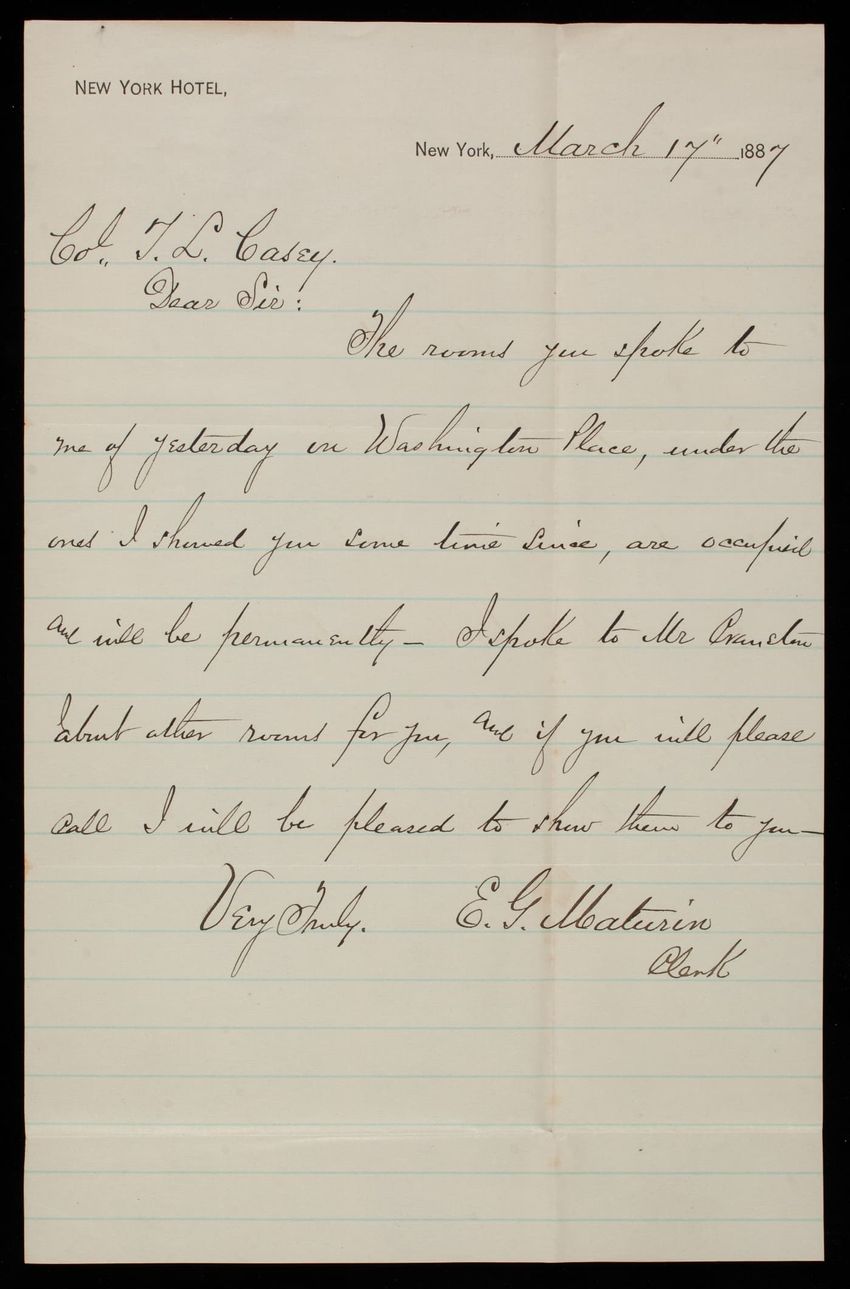 NEW YORK HOTEL,
New York, March 17" 1887
Col. T. L. Casey.
Dear Sir:
The rooms you spoke to
me of yesterday on Washington Place, under the
ones I showed you some time since, are occupied
and will be permanently – I spoke to Mr Cranston
about other rooms for you, and if you will please
call I will be pleased to show them to you –
Very Truly. E. G. Maturin
Clerk